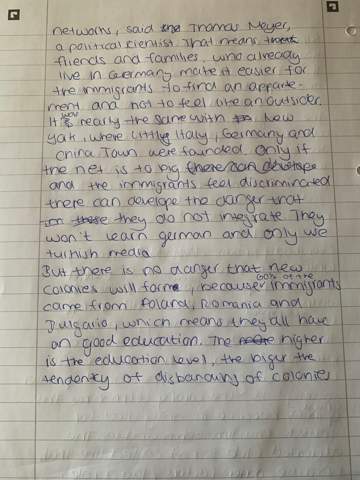 networks, said Thomas Meyer,
a political scientist. That means
friends and families, who already
live in Germany make it easier for
the immigrants to find an apparte-
ment and not to feel like an outsider.
It was nearly the same with New
York, where Little Italy, Germany and
China Town were founded. Only if
the net is to big there can develope
and the immigrants feel discriminated
there can develope the danger that
they do not integrate. They
won't learn german and only use
turkish media
But there is no danger that new
colonies will form, because 60% of the immigrants
came from Poland, Romania and
Bulgaria, which means they all have
an good education. The higher
is the education level, the biger the
tendenty of disbanding of colonies